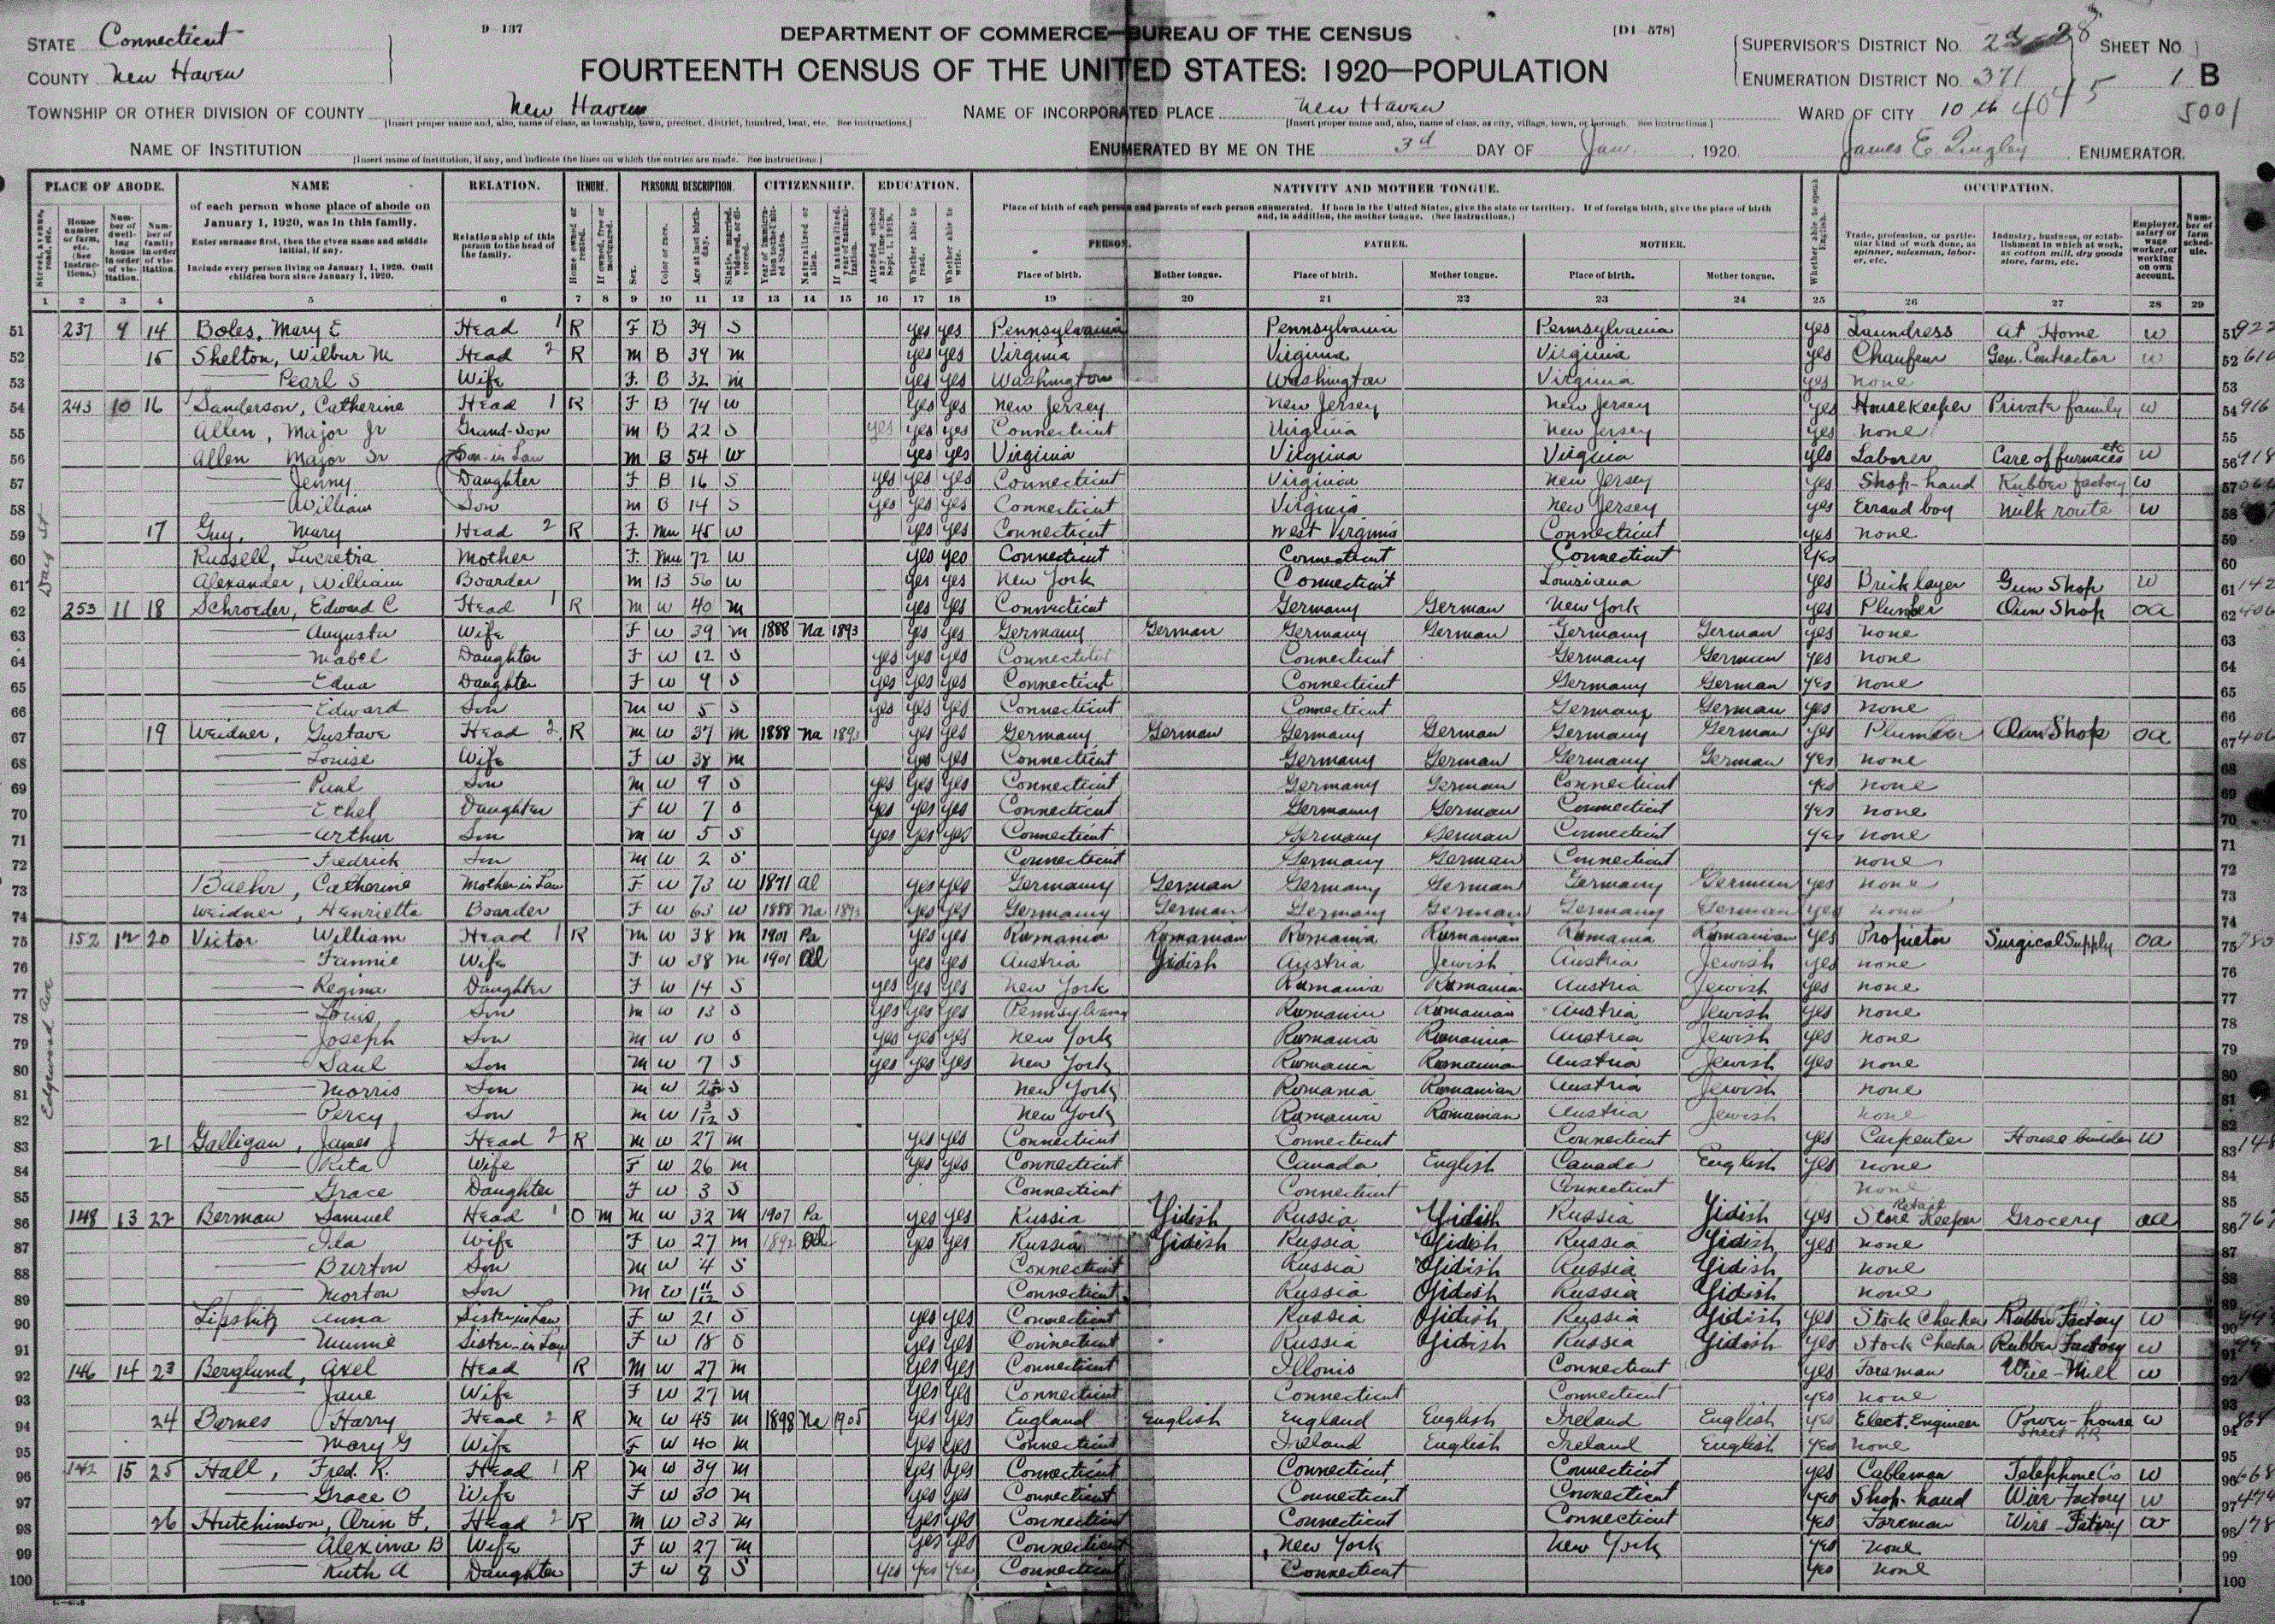 D-137
[D1-578]
STATE Connecticut
COUNTY New Haven
DEPARTMENT OF COMMERCE—BUREAU OF THE CENSUS
FOURTEENTH CENSUS OF THE UNITED STATES: 1920—POPULATION
SUPERVISOR'S DISTRICT No. SHEET No.
ENUMERATION DISTRICT No. 371 1 B
TOWNSHIP OR OTHER DIVISION OF COUNTY New Haven NAME OF INCORPORATED PLACE New Haven WARD OF CITY 10th
[Insert proper name and, also, name of class, as township, town, precinct, district, hundred, beat, etc. See instructions.] [Insert proper name and, also, name of class, as city, village, town, or borough. See instructions.]
NAME OF INSTITUTION ENUMERATED BY ME ON THE 3d DAY OF Jan. , 1920. James E. ENUMERATOR.
[Insert name of institution, if any, and indicate the lines on which the entries are made. See instructions.]
PLACE OF ABODE. NAME RELATION. TENURE. PERSONAL DESCRIPTION. CITIZENSHIP. EDUCATION. NATIVITY AND MOTHER TONGUE. OCCUPATION.
of each person whose place of abode on January 1, 1920, was in this family.
Enter surname first, then the given name and middle initial, if any.
Include every person living on January 1, 1920. Omit children born since January 1, 1920.
Relationship of this person to the head of the family.
Place of birth of each person and parents of each person enumerated. If born in the United States, give the state or territory. If of foreign birth, give the place of birth and, in addition, the mother tongue. (See instructions.)
PERSON. FATHER. MOTHER.
Place of birth. Mother tongue. Place of birth. Mother tongue. Place of birth. Mother tongue.
1 2 3 4 5 6 7 8 9 10 11 12 13 14 15 16 17 18 19 20 21 22 23 24 25 26 27 28 29
51 237 9 14 Boles, Mary E Head 1 R F B 39 S yes yes Pennsylvania Pennsylvania Pennsylvania yes Laundress at Home w
52 15 Shelton, Wilbur M Head 2 R m B 39 m yes yes Virginia Virginia Virginia yes Chaufeur Gen. Contractor w
53 Pearl S Wife F. B 32 m yes yes Washington Washington Virginia yes none
54 243 10 16 Sanderson, Catherine Head 1 R F B 74 w yes yes New Jersey New Jersey New Jersey yes Housekeeper Private family w
55 Allen, Major Jr Grand-Son m B 22 S yes yes yes Connecticut Virginia New Jersey yes none
56 Allen Major Sr Son-in Law m B 54 w yes yes Virginia Virginia Virginia yes Laborer Care of furnaces etc w
57 Jenny Daughter F B 16 S yes yes yes Connecticut Virginia New Jersey yes Shop-hand Rubber factory w
58 William Son m B 14 S yes yes yes Connecticut Virginia New Jersey yes Errand boy milk route w
59 17 Guy, Mary Head 2 R F. Mu 45 w yes yes Connecticut West Virginia Connecticut yes none
60 Russell, Lucretia Mother F. Mu 72 w yes yes Connecticut Connecticut Connecticut yes
61 Alexander, William Boarder m B 56 w yes yes New York Connecticut Louisiana yes Bricklayer Gun Shop w
62 253 11 18 Schroeder, Edward C Head 1 R m w 40 m yes yes Connecticut Germany German New York yes Plumber Own Shop oa
63 Augusta Wife F w 39 m 1888 Na 1893 yes yes Germany German Germany German Germany German yes none
64 Mabel Daughter F w 12 S yes yes yes Connecticut Connecticut Germany German yes none
65 Edna Daughter F w 9 S yes yes yes Connecticut Connecticut Germany German yes none
66 Edward Son m w 5 S yes yes yes Connecticut Connecticut Germany German yes none
67 19 Weidner, Gustave Head 2 R m w 37 m 1888 na 1893 yes yes Germany German Germany German Germany German yes Plumber Own Shop oa
68 Louise Wife F w 38 m yes yes Connecticut Germany German Germany German yes none
69 Paul Son m w 9 S yes yes yes Connecticut Germany German Connecticut yes none
70 Ethel Daughter F w 7 S yes yes yes Connecticut Germany German Connecticut yes none
71 Arthur Son m w 5 S yes yes yes Connecticut Germany German Connecticut yes none
72 Fredrick Son m w 2 S Connecticut Germany German Connecticut none
73 Buehr, Catherine Mother in Law F w 73 w 1871 al yes yes Germany German Germany German Germany German yes none
74 Weidner, Henrietta Boarder F w 63 w 1888 Na 1893 yes yes Germany German Germany German Germany German yes none
75 152 12 20 Victor William Head 1 R m w 38 m 1901 Pa yes yes Romania Romanian Romania Romanian Romania Romanian yes Propietor Surgical Supply oa
76 Fannie Wife F w 38 m 1901 al yes yes Austria Yidish Austria Jewish Austria Jewish yes none
77 Regina Daughter F w 14 S yes yes yes New York Romania Romanian Austria Jewish yes none
78 Louis Son m w 13 S yes yes yes Pennsylvania Romania Romanian Austria Jewish yes none
79 Joseph Son m w 10 S yes yes yes New York Romania Romanian Austria Jewish yes none
80 Saul Son m w 7 S yes yes yes New York Romania Romanian Austria Jewish yes none
81 Morris Son m w S New York Romania Romanian Austria Jewish none
82 Percy Son m w S New York Romania Romanian Austria Jewish none
83 21 Galligan, James J Head 2 R m w 27 m yes yes Connecticut Connecticut Connecticut yes Carpenter House builder w
84 Rita Wife F w 26 m yes yes Connecticut Canada English Canada English yes none
85 Grace Daughter F w 3 S Connecticut Connecticut Connecticut none
86 148 13 22 Berman Samuel Head 1 O m m w 32 m 1907 Pa yes yes Russia Yidish Russia Yidish Russia Yidish yes Retail Store Keeper Grocery oa
87 Ida Wife F w 27 m 1892 al yes yes Russia Yidish Russia Yidish Russia Yidish yes none
88 Burton Son m w 4 S Connecticut Russia Yidish Russia Yidish none
89 Morton Son m w 1 11/12 S Connecticut Russia Yidish Russia Yidish none
90 Lipshitz Anna Sister in Law F w 21 S yes yes Connecticut Russia Yidish Russia Yidish yes Stock Checker Rubber Factory w
91 Minnie Sister-in Law F w 18 S yes yes Connecticut Russia Yidish Russia Yidish yes Stock Checker Rubber Factory w
92 146 14 23 Berglund, Axel Head R m w 27 m yes yes Connecticut Illonis Connecticut yes Foreman Wire-Mill w
93 Jane Wife F w 27 m yes yes Connecticut Connecticut Connecticut yes none
94 24 Barnes Harry Head 2 R m w 45 m 1898 Na 1905 yes yes England English England English Ireland English yes Elect. Engineer Power-house Street RR w
95 Mary G Wife F w 40 m yes yes Connecticut Ireland English Ireland English yes none
96 142 15 25 Hall, Fred. R. Head 1 R m w 39 m yes yes Connecticut Connecticut Connecticut yes Cableman Telephone Co w
97 Grace O Wife F w 30 m yes yes Connecticut Connecticut Connecticut yes Shop-hand Wire Factory w
98 26 Hutchinson, Orin F. Head 2 R m w 33 m yes yes Connecticut Connecticut Connecticut yes Foreman Wire-Fatory w
99 Alexina B Wife F w 27 m yes yes Connecticut New York New York yes none
100 Ruth A Daughter F w 8 S yes yes yes Connecticut Connecticut yes none